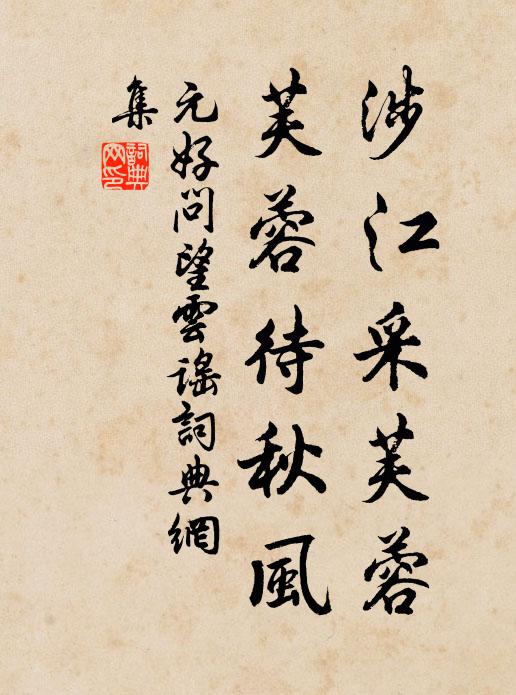 涉江采芙蓉
芙蓉待秋風
元好問望雲謠詞典網
集
詞典
网印